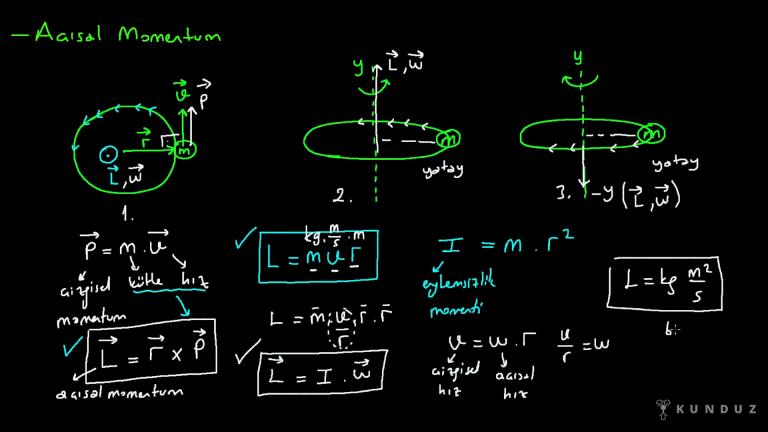 — Açısal Momentum
v⃗
P⃗
r⃗
m
L⃗, w⃗
1.
y
L⃗, w⃗
m
yatay
2.
y
m
yatay
3.
-y (L⃗, w⃗)
P⃗ = m . v⃗
çizgisel momentum
kütle
hız
L⃗ = r⃗ x P⃗
açısal momentum
kg. m/s . m
L = m v r
L = m . v/r . r . r
L⃗ = I . w⃗
I = m . r²
eylemsizlik
momenti
v = w . r
v/r = w
çizgisel hız
açısal hız
L = kg m²/s
KUNDUZ